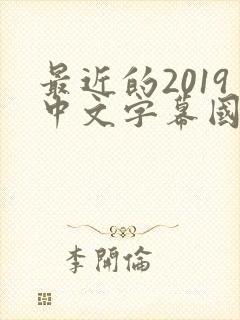 最近的2019
中文字幕國
李開倫